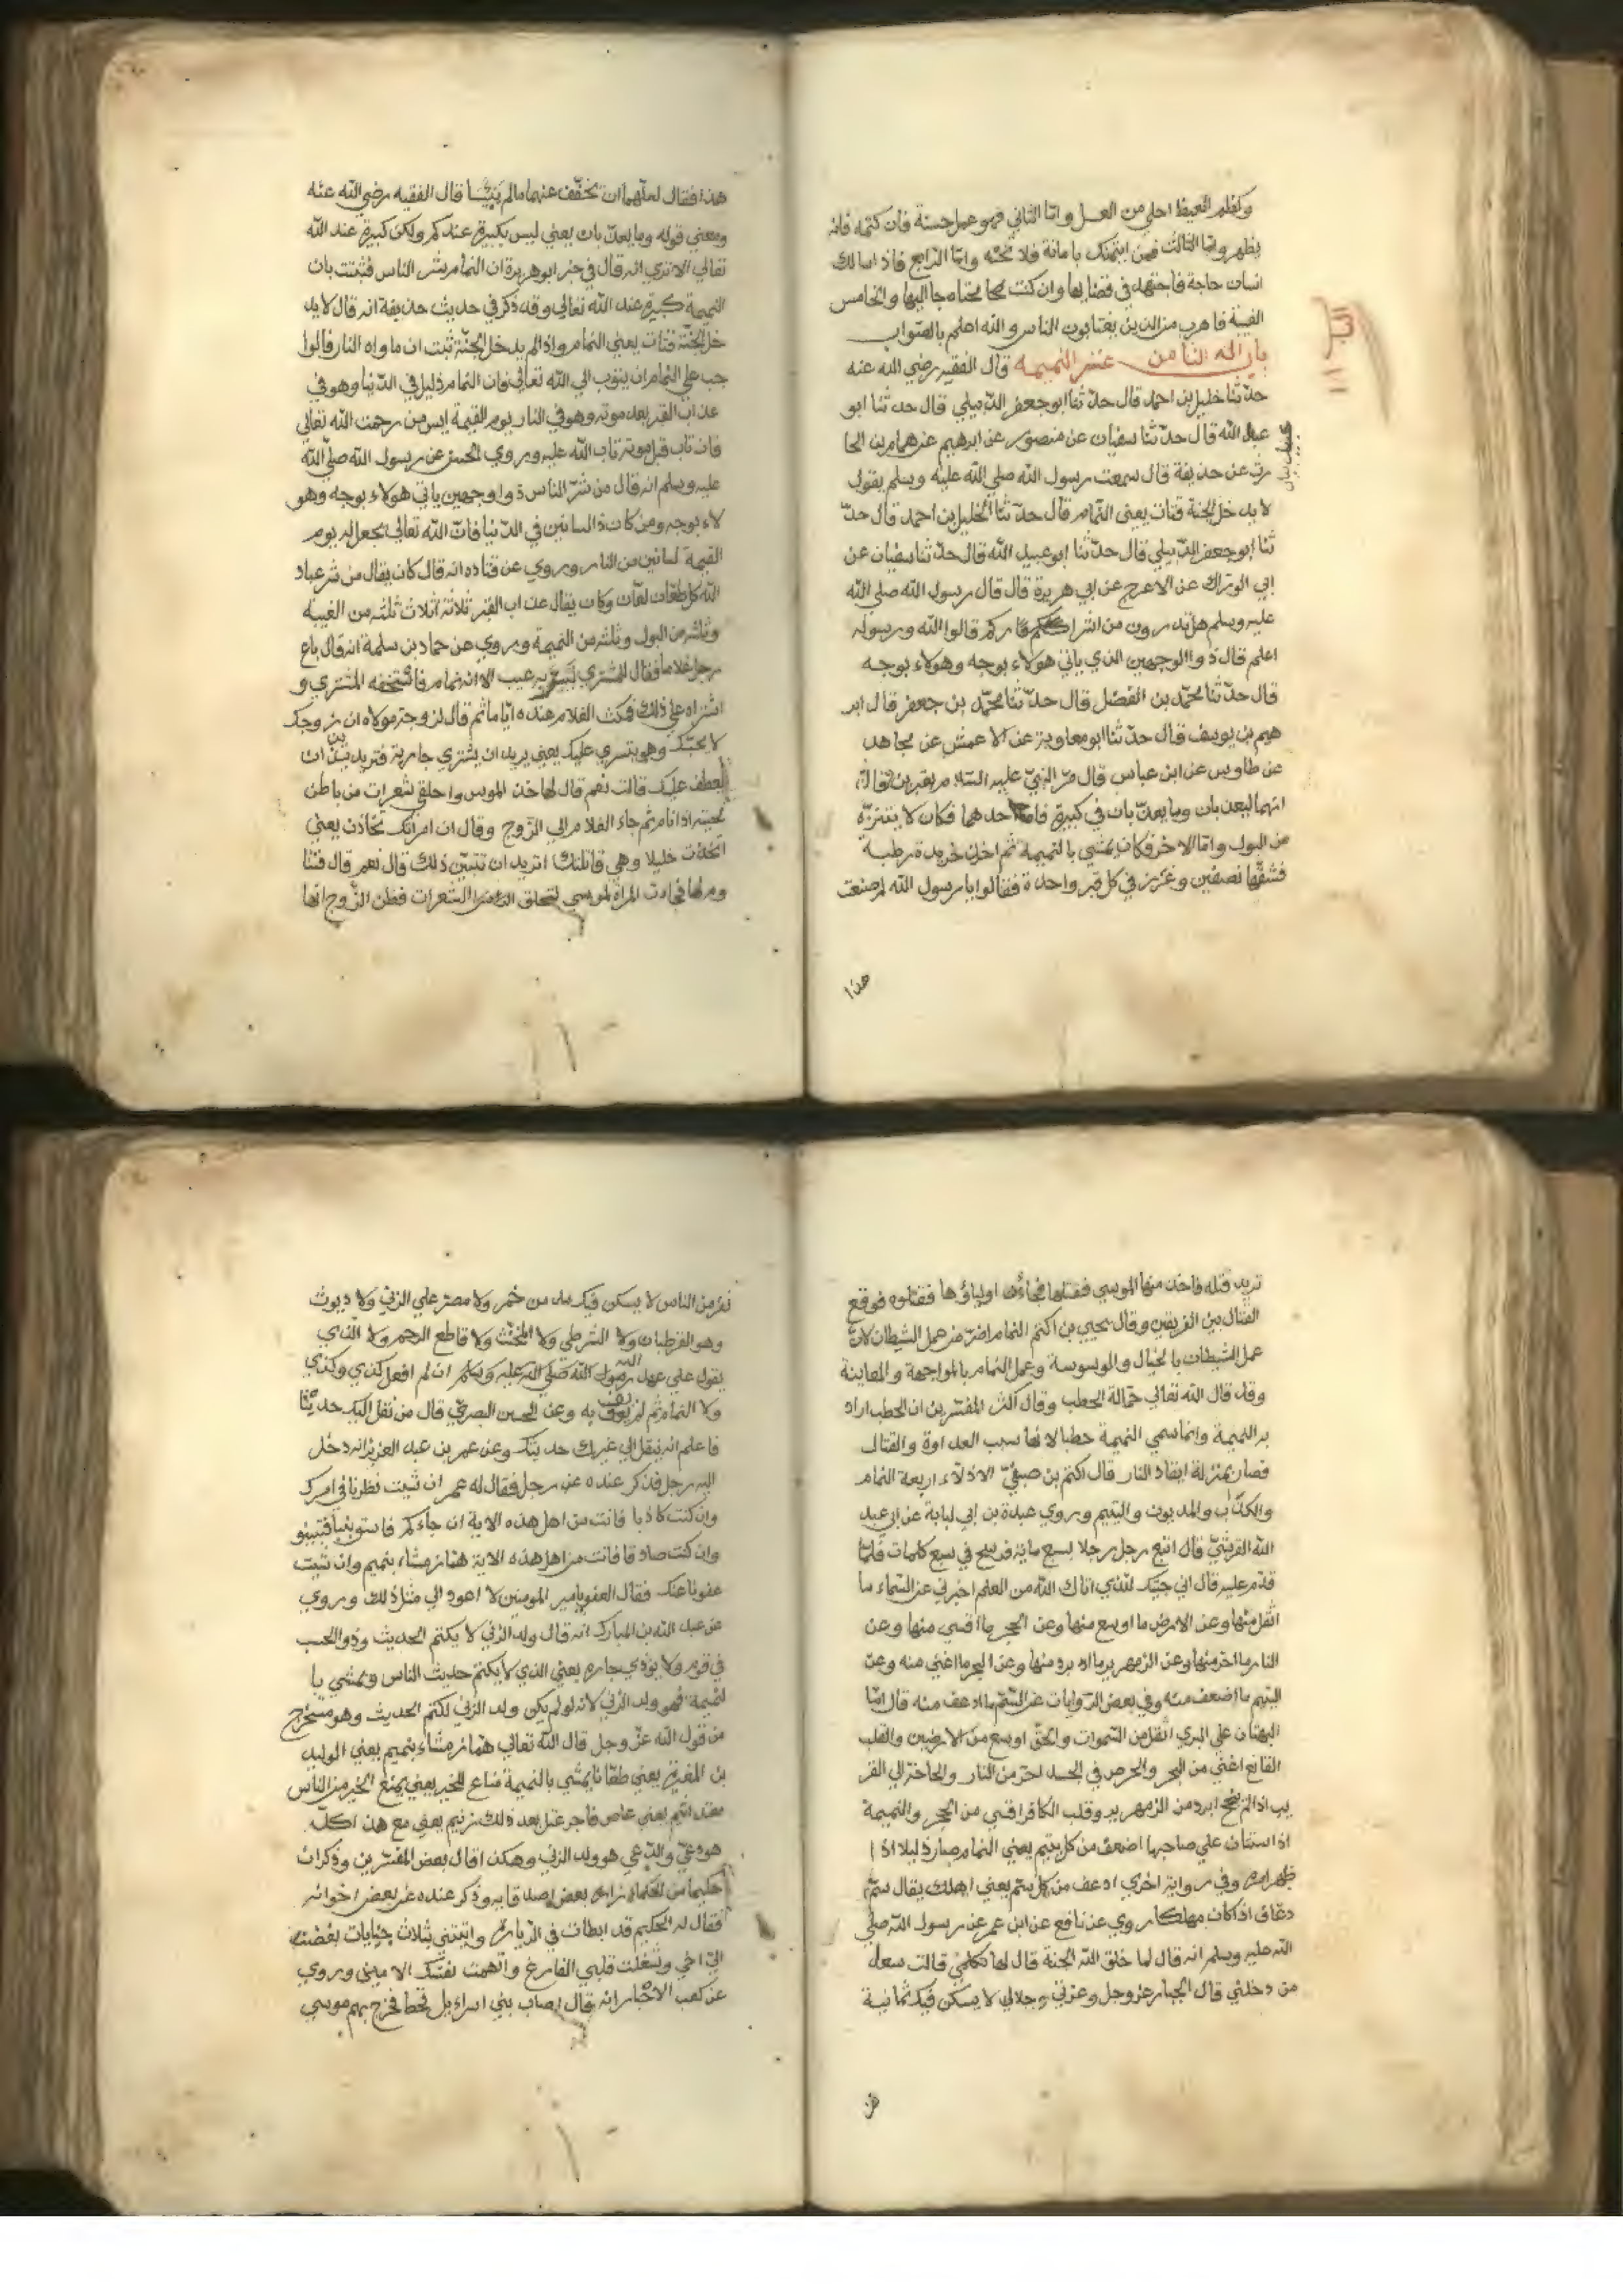 وكظم الغيظ احلي من العسل وامّا الثاني فهو عمل حسنة فان كتمه فانه
يظهر وامّا الثالث فمن ايتمنك بامانة فلا تخنه وامّا الرّابع فاذا سالك
انسان حاجة فاجتهد في قضايها وان كنت محتاجا اليها والخامس
الغيبة فاهرب من الذين يغتابون الناس والله اعلم بالصّواب
باب اله الثامن عشر النميمه قال الفقيه رضي الله عنه
حدّثنا خليل بن احمد قال حدّثنا ابو جعفر الدّبيلي قال حدثنا ابو
عبد الله قال حدّثنا سفيان عن منصور عن ابرهيم عن همام بن الحا
رث عن حذيفة قال سمعت رسول الله صلي الله عليه وسلم يقول
لا يدخل الجنة قتات يعني النّمام قال حدّثنا الخليل بن احمد قال حدّ
ثنا ابو جعفر الدّبيلي قال حدّثنا ابو عبيد الله قال حدّثنا سفيان عن
ابي الوتراك عن الاعرج عن ابي هريرة قال قال رسول الله صلي الله
عليه وسلم هل تدرون من اشراركم قالوا الله ورسوله
اعلم قال ذوا الوجهين الذي ياتي هولاء بوجه وهولاء بوجه
قال حدّثنا محمّد بن الفضل قال حدّثنا محمّد بن جعفر قال ابر
هيم بن يوسف قال حدّثنا ابو معاوية عن الاعمش عن مجاهد
عن طاوس عن ابن عباس قال مرّ النبيّ عليه السّلام بقبرين فقال
انهما ليعذبان وما يعذّبان في كبيرة فاما احدهما فكان لا يتنزّه
من البول وامّا الاخر فكان يمشي بالنميمة ثم اخذ خريدة رطبة
فشقّها نصفين وغرز في كل قبر واحدة فقالوا يا رسول الله لم صنعت
هذا
هذا فقال لعلّهما ان تخفّف عنهما مالم ييبسا قال الفقيه رضي الله عنه
ومعني قوله وما يعذّبان يعني ليس بكبيرة عندكم ولكن كبيرة عند الله
تعالي الا تري انه قال في خبر ابو هريرة ان النمام شر الناس فثبتت بان
النميمة كبيرة عند الله تعالي وقد ذكر في حديث حذيفة انه قال لا يد
خل الجنّة قتات يعني النمام واذا لم يدخل الجنّة ثبت ان ماواه النار فالوا
جب علي النمام ان يتوب الي الله تعالي فان النمام ذليل في الدّنيا وهو في
عذاب القبر بعد موته وهو في النار يوم القيمة ايس من رحمت الله تعالي
فان تاب قبل موته تاب الله عليه وروي الحسن عن رسول الله صلّي الله
عليه وسلم انه قال من شرّ الناس ذوا وجهين ياتي هولاء بوجه وهو
لاء بوجه ومن كان ذا لسانين في الدّنيا فانّ الله تعالي يجعل له يوم
القيمة لسانين من النار وروي عن قتاده انه قال كان يقال من شر عباد
الله كل طعّان لعّان وكان يقال عذاب القبر ثلاثة اثلاث ثلثه من الغيبة
وثلثه من البول وثلثه من النميمة وروي عن حماد بن سلمة انه قال باع
رجل غلاما فقال للمشتري ليس به عيب الا انه نمام فاستخفه المشتري و
اشتراه علي ذلك فمكث الغلام عنده ايّاما ثم قال لزوجة مولاه ان زوجك
لا يحبّك وهو يتسري عليك يعني يريد ان يشتري جارية فتريدين ان
يعطف عليك قالت نعم قال لها خذ الموس واحلقي شعرات من باطن
لحيته اذا نام ثم جاء الغلام الي الزّوج وقال ان امراتك تخاذن يعني
اتخذت خليلا وهي قاتلتك اتريد ان تتبيّن ذلك قال نعم قال فتنا
وم لها فجاءت المراة لموسي لتحلق الشعرات فظن الزّوج انها
تريد قتله فاخذ منها الموسي فقتلها فجاءه اولياؤها فقتلوه فوقع
القتال بين الفريقين وقال يحيي بن اكتم النمام اضرّ من عمل الشيطان لانّ
عمل الشيطان بالخيال والوسوسة وعمل النمام بالمواجهة والمعاينة
وقد قال الله تعالي حمّالة الحطب وقال اكثر المفسّرين ان الحطب اراد
به النميمة وانما سمي النميمة حطبا لانها سبب العداوة والقتال
فصار بمنزلة ايقاد النار قال اكتم بن صيفيّ الاذلّاء اربعة النمام
والكذّاب والمديون واليتيم وروي عبدة بن ابي لبابة عن ابي عبد
الله القرشيّ قال اتبع رجل رجلا بسبع ماية فرسخ في سبع كلمات فلمّا
قدم عليه قال اني جيتك للذي اتاك الله من العلم اخبرني عن السّماء ما
اثقل منها وعن الارض ما اوسع منها وعن الحجر ما اقسي منها وعن
النار ما احر منها وعن الزمهرير ما ابرد منها وعن البحر ما اغني منه وعن
اليتيم ما اضعف منه وفي بعض الرّوايات عن السّم ما ادعف منه قال امّا
البهتان علي البري اثقل من السّموات والحقّ اوسع من الارضين والقلب
القانع اغني من البحر والحرص في الجسد احر من النار والحاجة الي القر
يب اذا لم تنجح ابرد من الزمهرير وقلب الكافر اقسي من الحجر والنميمة
اذا استبان علي صاحبها اضعف من كل يتيم يعني النمام صار ذليلا اذا
ظهر امره وفي رواية اخري ادعف من كل سمّ يعني اهلك يقال سمّ
دعاف اذا كان مهلكا روي عن نافع عن ابن عمر عن رسول الله صلي
الله عليه وسلم انه قال لما خلق الله الجنة قال لها تكلمي قالت سعد
من دخلني قال الجبار عزّ وجل وعزتي وجلالي لا يسكن فيك ثمانية
نفر من الناس لا يسكن فيك مدمن خمر ولا مصر علي الزني ولا ديوث
وهو القرطبان ولا الشرطي ولا المخنّث ولا قاطع الرحم ولا الذي
يقول علي عهد الله ان لم افعل كذي وكذي
ولا النمام ثم لم يوف به وعن الحسن البصريّ قال من نقل اليك حديثا
فاعلم انه ينقل الي غيرك حديثك وعن عمر بن عبد العزيز انه دخل
اليه رجل فذكر عنده عن رجل فقال له عمر ان شيت نظرنا في امرك
وان كنت كاذبا فانت من اهل هذه الاية ان جاءكم فاسق بنبا فتبينو
وان كنت صادقا فانت من اهل هذه الاية همّاز مشّاء بنميم وان شيت
عفونا عنك فقال العفو يا امير المومنين لا اعود الي مثل ذلك وروي
عن عبد الله بن المبارك انه قال ولد الزني لا يكتم الحديث وذو الحسب
في قومه ولا يوذي جاره يعني الذي لا يكتم حديث الناس ويمشي با
لنميمة فهو ولد الزني لانه لو لم يكن ولد الزني لكتم الحديث وهو مستخراج
من قول الله عزّ وجل قال الله تعالي همّاز مشّاء بنميم يعني الوليد
بن المغيرة يعني طعّانا يمشي بالنميمة منّاع للخير يعني يمنع الخير من الناس
معتد اثيم يعني عاص فاجر عتل بعد ذلك زنيم يعني مع هذا كلّه
هو دعيّ والدّعي هو ولد الزني وهكذا قال بعض المفسّرين وذكر ان
حكيما من الحكماء زاره بعض اصدقايه وذكر عنده عن بعض اخوانه
فقال له الحكيم قد ابطات في الزّيارة واتيتني بثلاث جنايات بغضت
اليّ اخي وشغلت قلبي الفارغ واتهمت نفسك الاميني وروي
عن كعب الاحبار انه قال اصاب بني اسراءيل قحط فخرج بهم موسي